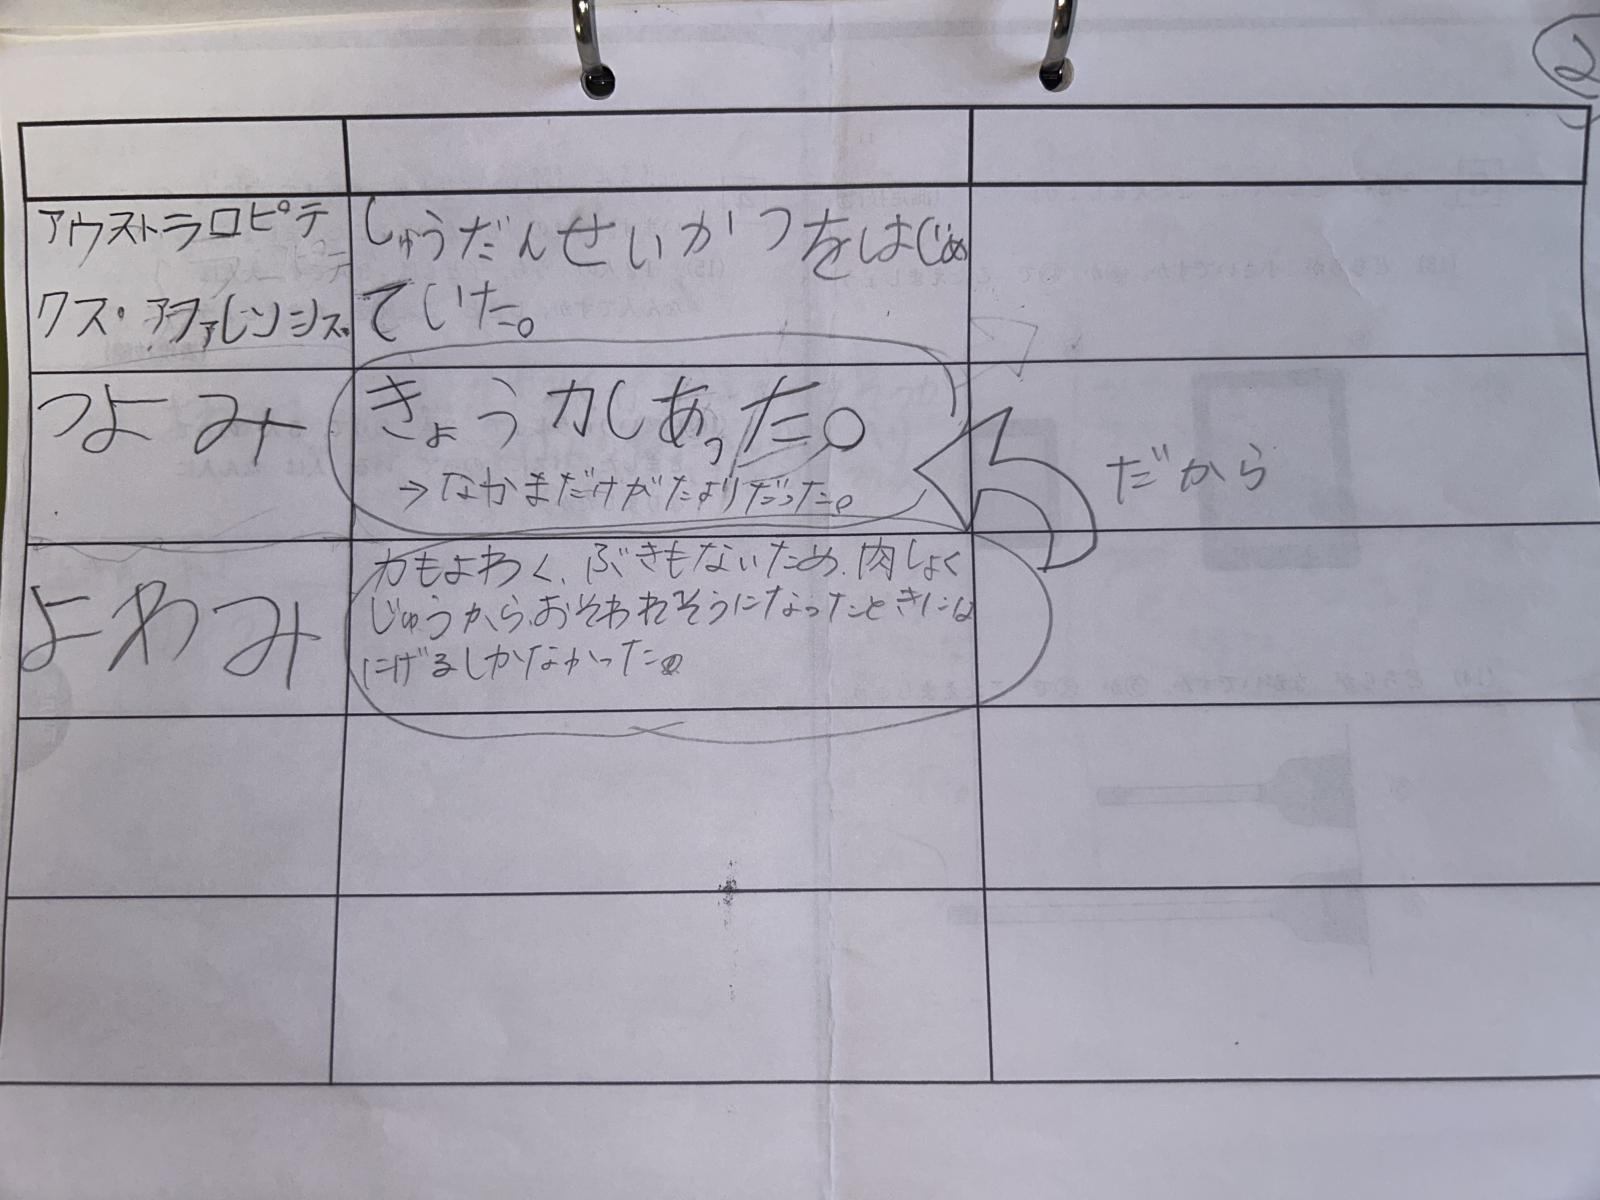 ②
アウストラロピテ
クス・アファレンシス
しゅうだんせいかつをはじめ
ていた。
つよみ
きょう力しあった。
→なかまだけがたよりだった。
だから
よわみ
力もよわく、ぶきもないため、肉しょく
じゅうから、おそわれそうになったときには
にげるしかなかった。